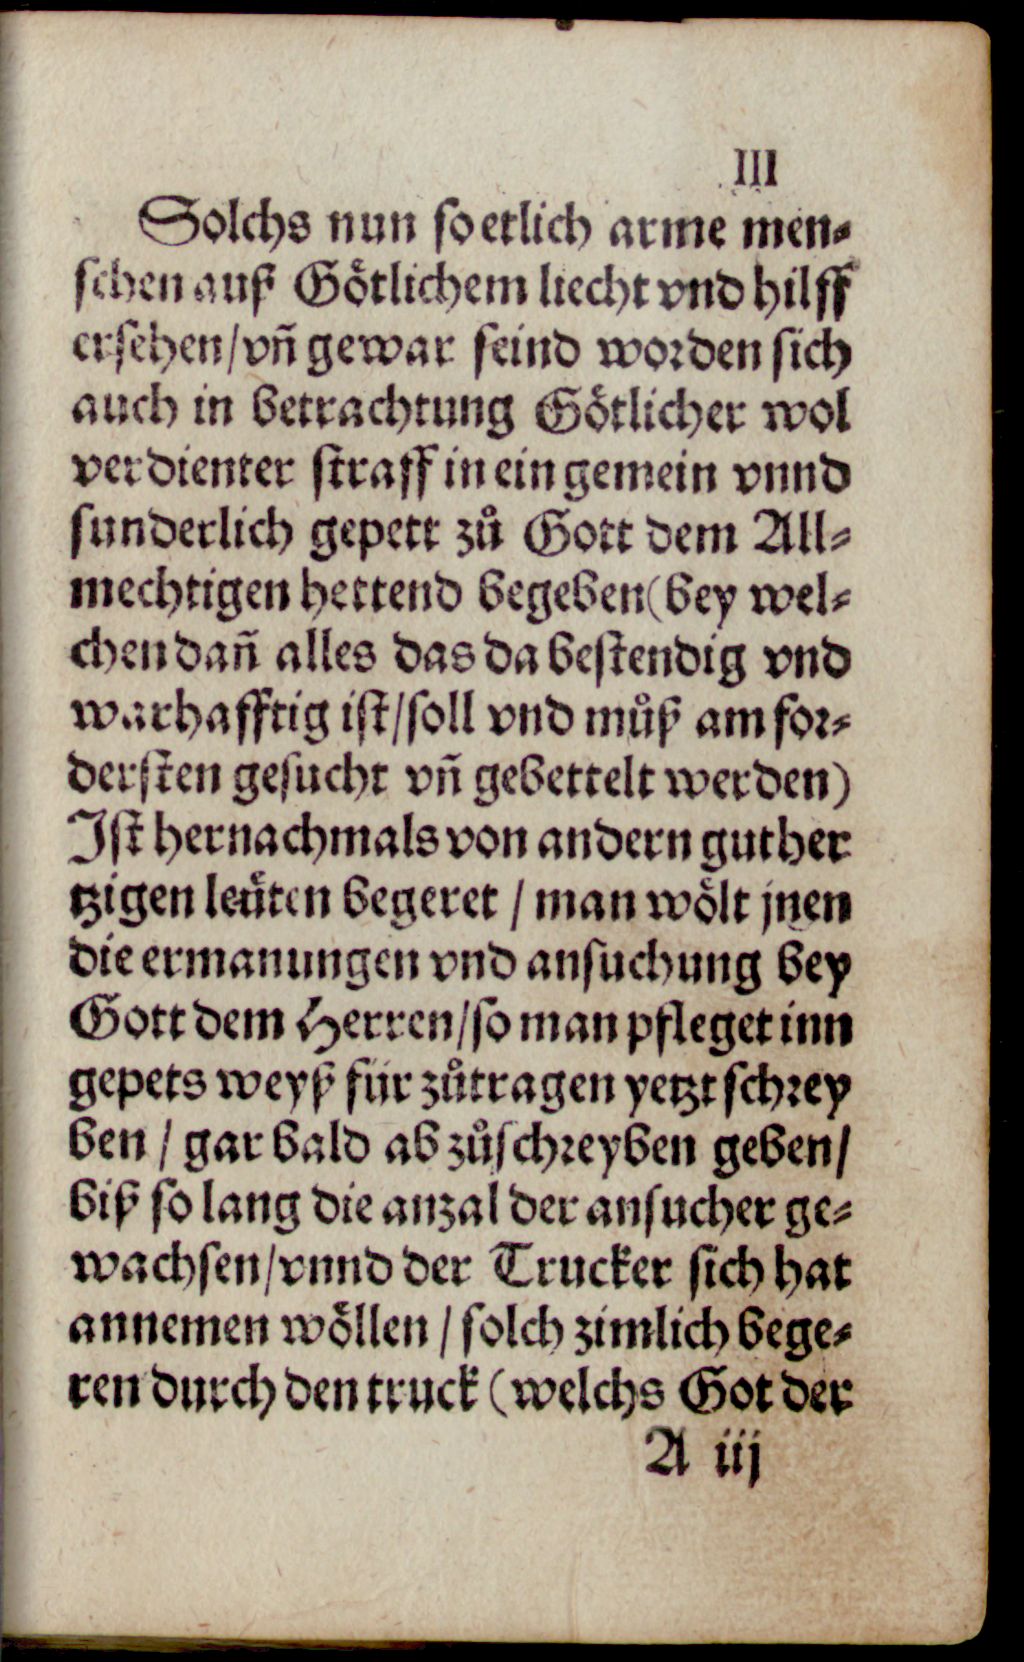 III
Solchs nun so etlich arme men⸗
schen auß Götlichem liecht vnd hilff
ersehen/vñ gewar seind worden sich
auch in betrachtung Götlicher wol
verdienter straff in ein gemein vnnd
sunderlich gepett zů Gott dem All⸗
mechtigen hettend begeben(bey wel⸗
chen dañ alles das da bestendig vnd
warhafftig ist/soll vnd můß am for⸗
dersten gesucht vñ gebettelt werden)
Ist hernachmals von andern guther
tzigen leüten begeret / man wölt jnen
die ermanungen vnd ansuchung bey
Gott dem Herren/so man pfleget inn
gepets weyß für zůtragen yetzt schrey
ben / gar bald ab zůschreyben geben/
biß so lang die anzal der ansucher ge⸗
wachsen/vnnd der Trucker sich hat
annemen wöllen / solch zimlich bege⸗
ren durch den truck (welchs Got der
A iij